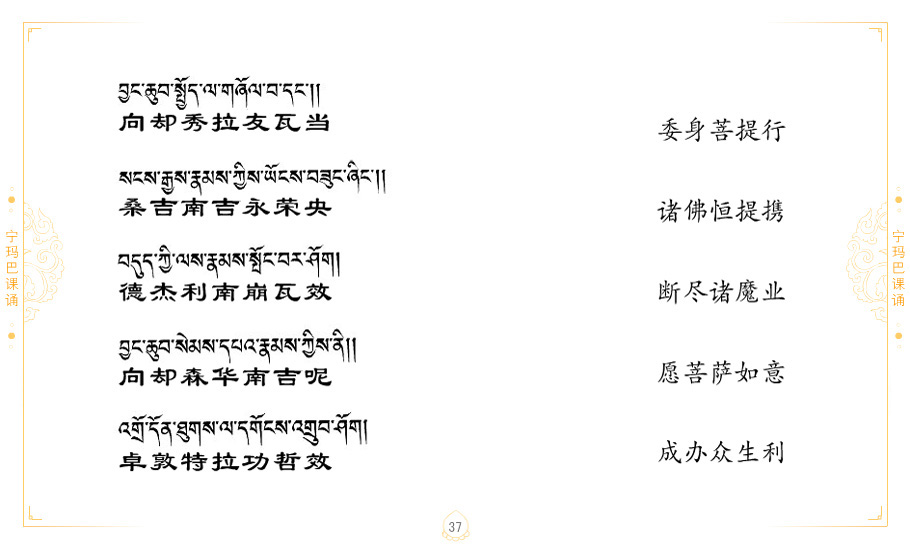 བྱང་ཆུབ་སྤྱོད་ལ་གཞོལ་བ་དང་།།
向却秀拉友瓦当
委身菩提行
སངས་རྒྱས་རྣམས་ཀྱིས་ཡོངས་བཟུང་ཞིང་།།
桑吉南吉永荣央
诸佛恒提携
བདུད་ཀྱི་ལས་རྣམས་སྤོང་བར་ཤོག།
德杰利南崩瓦效
断尽诸魔业
བྱང་ཆུབ་སེམས་དཔའ་རྣམས་ཀྱིས་ནི།།
向却森华南吉呢
愿菩萨如意
འགྲོ་དོན་ཐུགས་ལ་དགོངས་འགྲུབ་ཤོག།
卓敦特拉功哲效
成办众生利
宁玛巴课诵
宁玛巴课诵
37